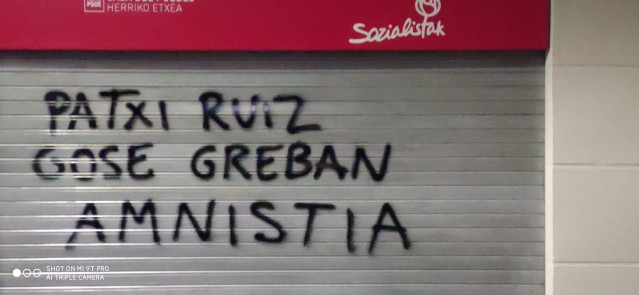 PSOE
HERRIKO ETXEA
Sozialistak
PATXI RUIZ
GOSE GREBAN
AMNISTIA
SHOT ON MI 9T PRO
AI TRIPLE CAMERA